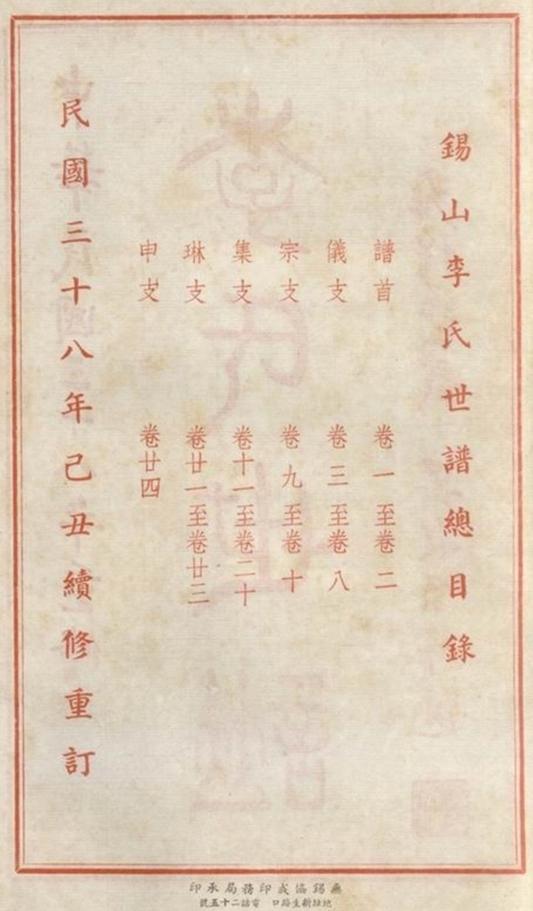 錫山李氏世譜總目錄
譜首 卷一至卷二
儀支 卷三至卷八
宗支 卷九至卷十
集支 卷十一至卷二十
琳支 卷廿一至卷廿三
申支 卷廿四
民國三十八年己丑續修重訂
無錫協成印務局承印
地址新生路口 電話二十五號